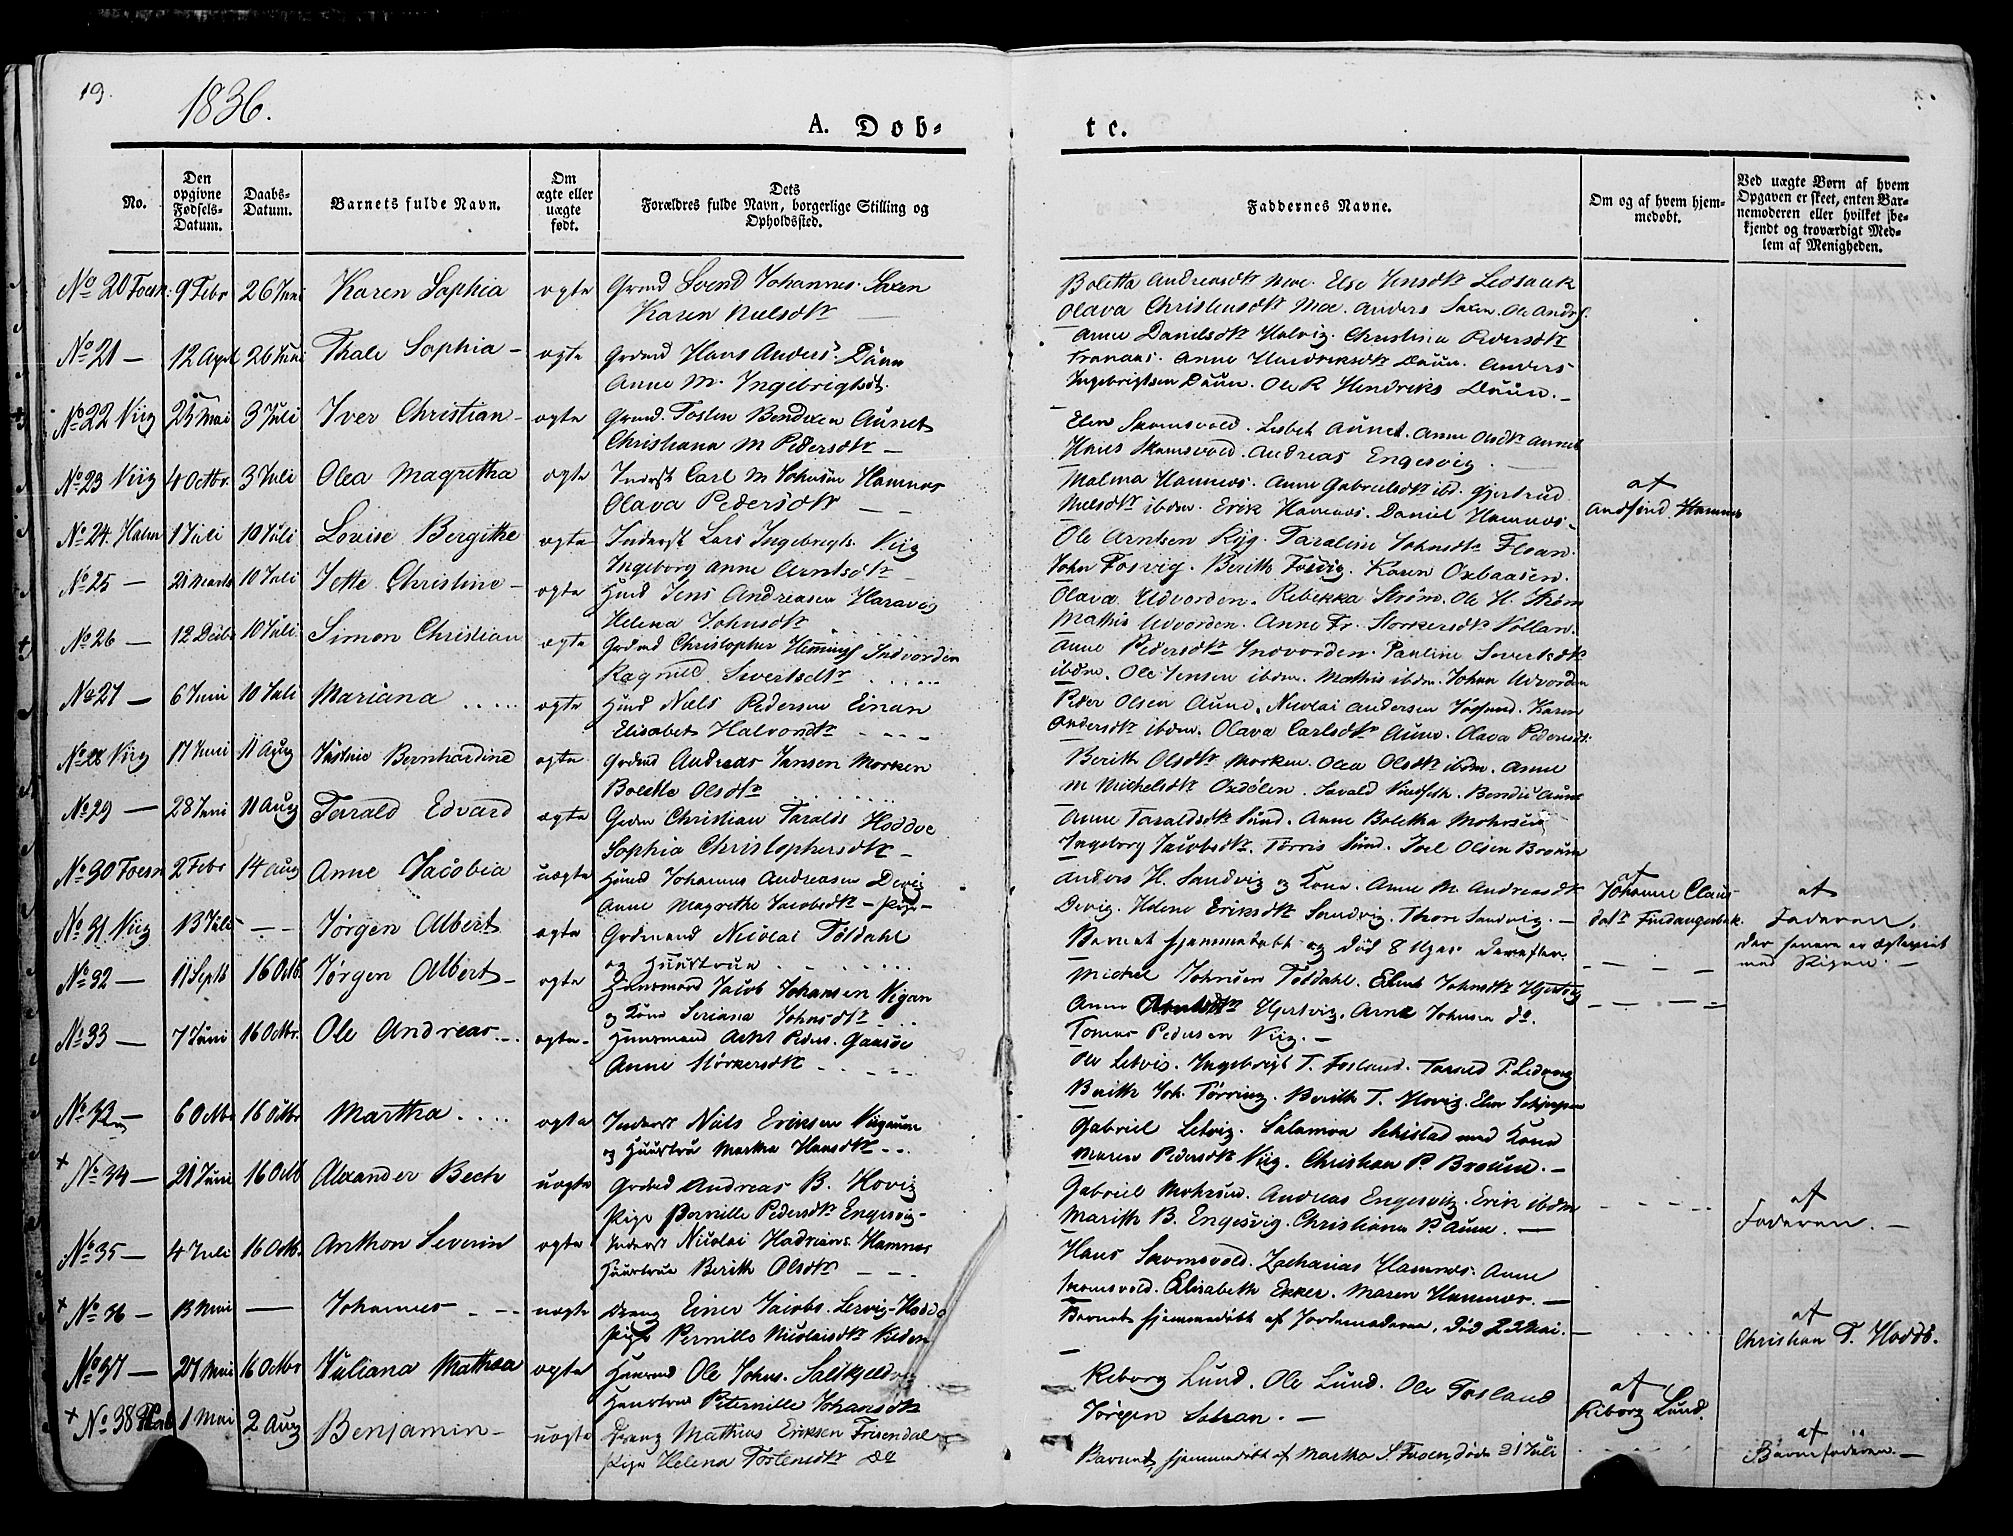 19.
1836.
A. Døb-
te.
No.
Den opgivne Fødsels-Datum.
Daabs-Datum.
Barnets fulde Navn.
Om ægte eller uægte født.
Dets Forældres fulde Navn, borgerlige Stilling og Opholdssted.
Faddernes Navne.
Om og af hvem hjemmedøbt.
Ved uægte Børn af hvem Opgaven er skeet, enten Barnemoderen eller hvilket bekjendt og troværdigt Medlem af Menigheden.
No 20 Foesn. 9 Febr 26 Juni Karen Sophia ægte Grmd Svend Johannes. Saxen
Karen Nielsdtr
Boletta Andreasdtr Moe. Else Jensdtr
Olava Christensdtr Moe. Anders Saxen. Ole Andrs.
No 21 — 12 Apil 26 Juni Thale Sophia — ægte Grdmd Hans Anders. Daun
Anne M. Ingebrigtsdt.
Anne Danielsdtr Halvig. Christina Pedersdtr
Anne Hendriksdtr Daun. Anders
Ingebrigtsen Daun. Ole R Hendriks Daun.
No 22 Viig 25 Mai 3 Juli Iver Christian — ægte Grmd. Tosten Bendixen Aunet
Christiana M Pedersdtr —
Elen Skomsvold. Lisbet Aunet. Anne Olsdtr Aunet
Hans Skomsvold. Andreas Engesvig.
No 23 Viig 4 Octbr. 3 Juli Olea Magretha ægte Inderst Carl M Johnsen Hamnes
Olava Pedersdtr — —
Malena Hamnes. Anne Gabrielsdtr ibd. Gjertrud
Nielsdtr ibdm. Erik Hamnes. Daniel Hamnes —
af
Hamnes
No 24. Halm 1 Juli 10 Juli Lovise Bergithe ægte Inderst Lars Ingebregts. Viig
Ingeborg Anne Arntsdtr
Ole Arntsen Viig. Taraline Johnsdtr Floan.
John Fosvig. Berith Fosvig. Karen Oxbaasen.
No 25 — 21 Marts 10 Juli Jette Christine — ægte Husmd Jens Andreasen Haravig
Helena Johnsdtr
Olava Udvorden. Rebekka Strøm. Ole H. Strøm
Mathis Udvorden. Anne Fr. Storkersdtr Vollan.
No 26 — 12 Debr 10 Juli Simon Christian ægte Grdmd Christopher Hemmings Indvorden
Ragnild Sivertsdtr
Anne Pedersdtr Indvorden. Pauline Sivertsdtr
ibdm. Ole Jensen ibdm. Mathis ibdm. Johan Udvorden
No 27 — 6 Juni 10 Juli Mariana ægte Husmd Niels Pedersen Einan
Elisabet Halvorsdtr
Peder Olsen Aune. Nicolai Andersen Karen
Andersdtr ibdm. Olava Carlsdtr Aune. Olava Pedersdt.
No 28 Viig 17 Juni 11 Aug Bernhardine ægte Grdmd Andreas Jansen Morken
Bolette Olsdtr
Berith Olsdtr Morken. Olea Olsdtr ibdm. Anne
M Michelsdtr Oxdølen. Bendix Aune
No 29 — 28 Juni 11 Aug Tarald Edvard ægte Grdm Christian Taralds Hodde
Sophia Christophersdtr —
Anne Taraldsdtr Sund. Anne Boletha Mohrsen
Ingeborg Jacobsdtr. Tørris Sund. Joel Olsen Broum
No 30 Foesn 2 Febr 14 Aug Anne Jacobia uægte Husmd Johannes Andreasen Devig
Anne Magrethe Jacobsdtr — Pige —
Anders H. Sandvig og Kone. Anne M. Andreasdtr
Devig. Helene Eriksdtr Sandvig. Thore Sandvig. —
af
Johanne Claus-
datr Findangerbek.
af
Faderen,
der senere er ægteviet
med Pigen. —
No 31 Viig 13 Juli — — Jørgen Albert ægte Grdmand Nicolai Tøldahl
og Huustrue
Barnet hjemmedøbt og død 8 Uger derefter.
No 32 — 11 Septb 16 Octb. Jørgen Albert — ægte Huusmand Jacob Johansen Vigan
og Kone Seriana Johnsdtr
Michel Johnsen Toldahl. Elens Johnsdtr Hjertvig
Anne Arntsdtr Hjertvig. Arne Johnsen do.
Tomas Pedersen Viig. —
No 33 — 7 Juni 16 Octbr. Ole Andreas ægte — Huusmand Arnt Peders. Gaasøe
Anne Storkersdtr
Ole Letvig. Ingebrigt T. Fosland. P. Ledvig
Berith Joh. Tørring. Berith T. Hovig.
No 32 — 6 Octbr 16 Octbr Martha ægte Inderst Niels Eriksen Vigaune
og Huustru Martha Hansdtr
Gabriel Letvig. Salamon Schistad med Kone
Maren Pedersdtr Viig. Christian P. Broum. —
+ No 34 — 21 Juni 16 Octb Alexander Bech uægte Grdmd Andreas B. Hovig
Pige Pernille Pedersdtr Engesvig —
Gabriel Mohrsen. Andreas Engesvig. Erik ibdm
Marith B. Engesvig. Christiana P. Aune. —
af
Faderen. —
No 35 — 4 Juli 16 Octb. Anthon Severin ægte Inderst Nicolai Hadrians. Hamnes
Huustrue Berith Olsdtr
Hans Skomsvold. Zacharias Hamnes. Anne
Skomsvold. Elisabeth Ekker. Maren Hamnes. —
+ No 36 — 13 Mai — Johannes uægte Dreng Einer Jacobs. Lervig — Hodde
Pige Pernille Nicolaisdtr
Barnet hjemmedøbt af Jordemoderen, død 22 Mai.
af
Christian T. Hodde.
No 37 — 27 Mai 16 Octbr Juliana Mathea ægte Huusmd Ole Johns. Saltkjeld
Huustrue Peternille Johansdtr
Reborg Lund. Ole Lund. Ole Fosland
Jørgen Sotran. —
af
Riborg Lund.
+ No 38 1 Mai 2 Aug Benjamin — uægte Dreng Mathias Eriksen Frisendal
Pige Helena Tostensdtr Do
Barnet hjemmedøbt af Martha S. Fosen, døde 31 Juli
af
Barnefaderen. —